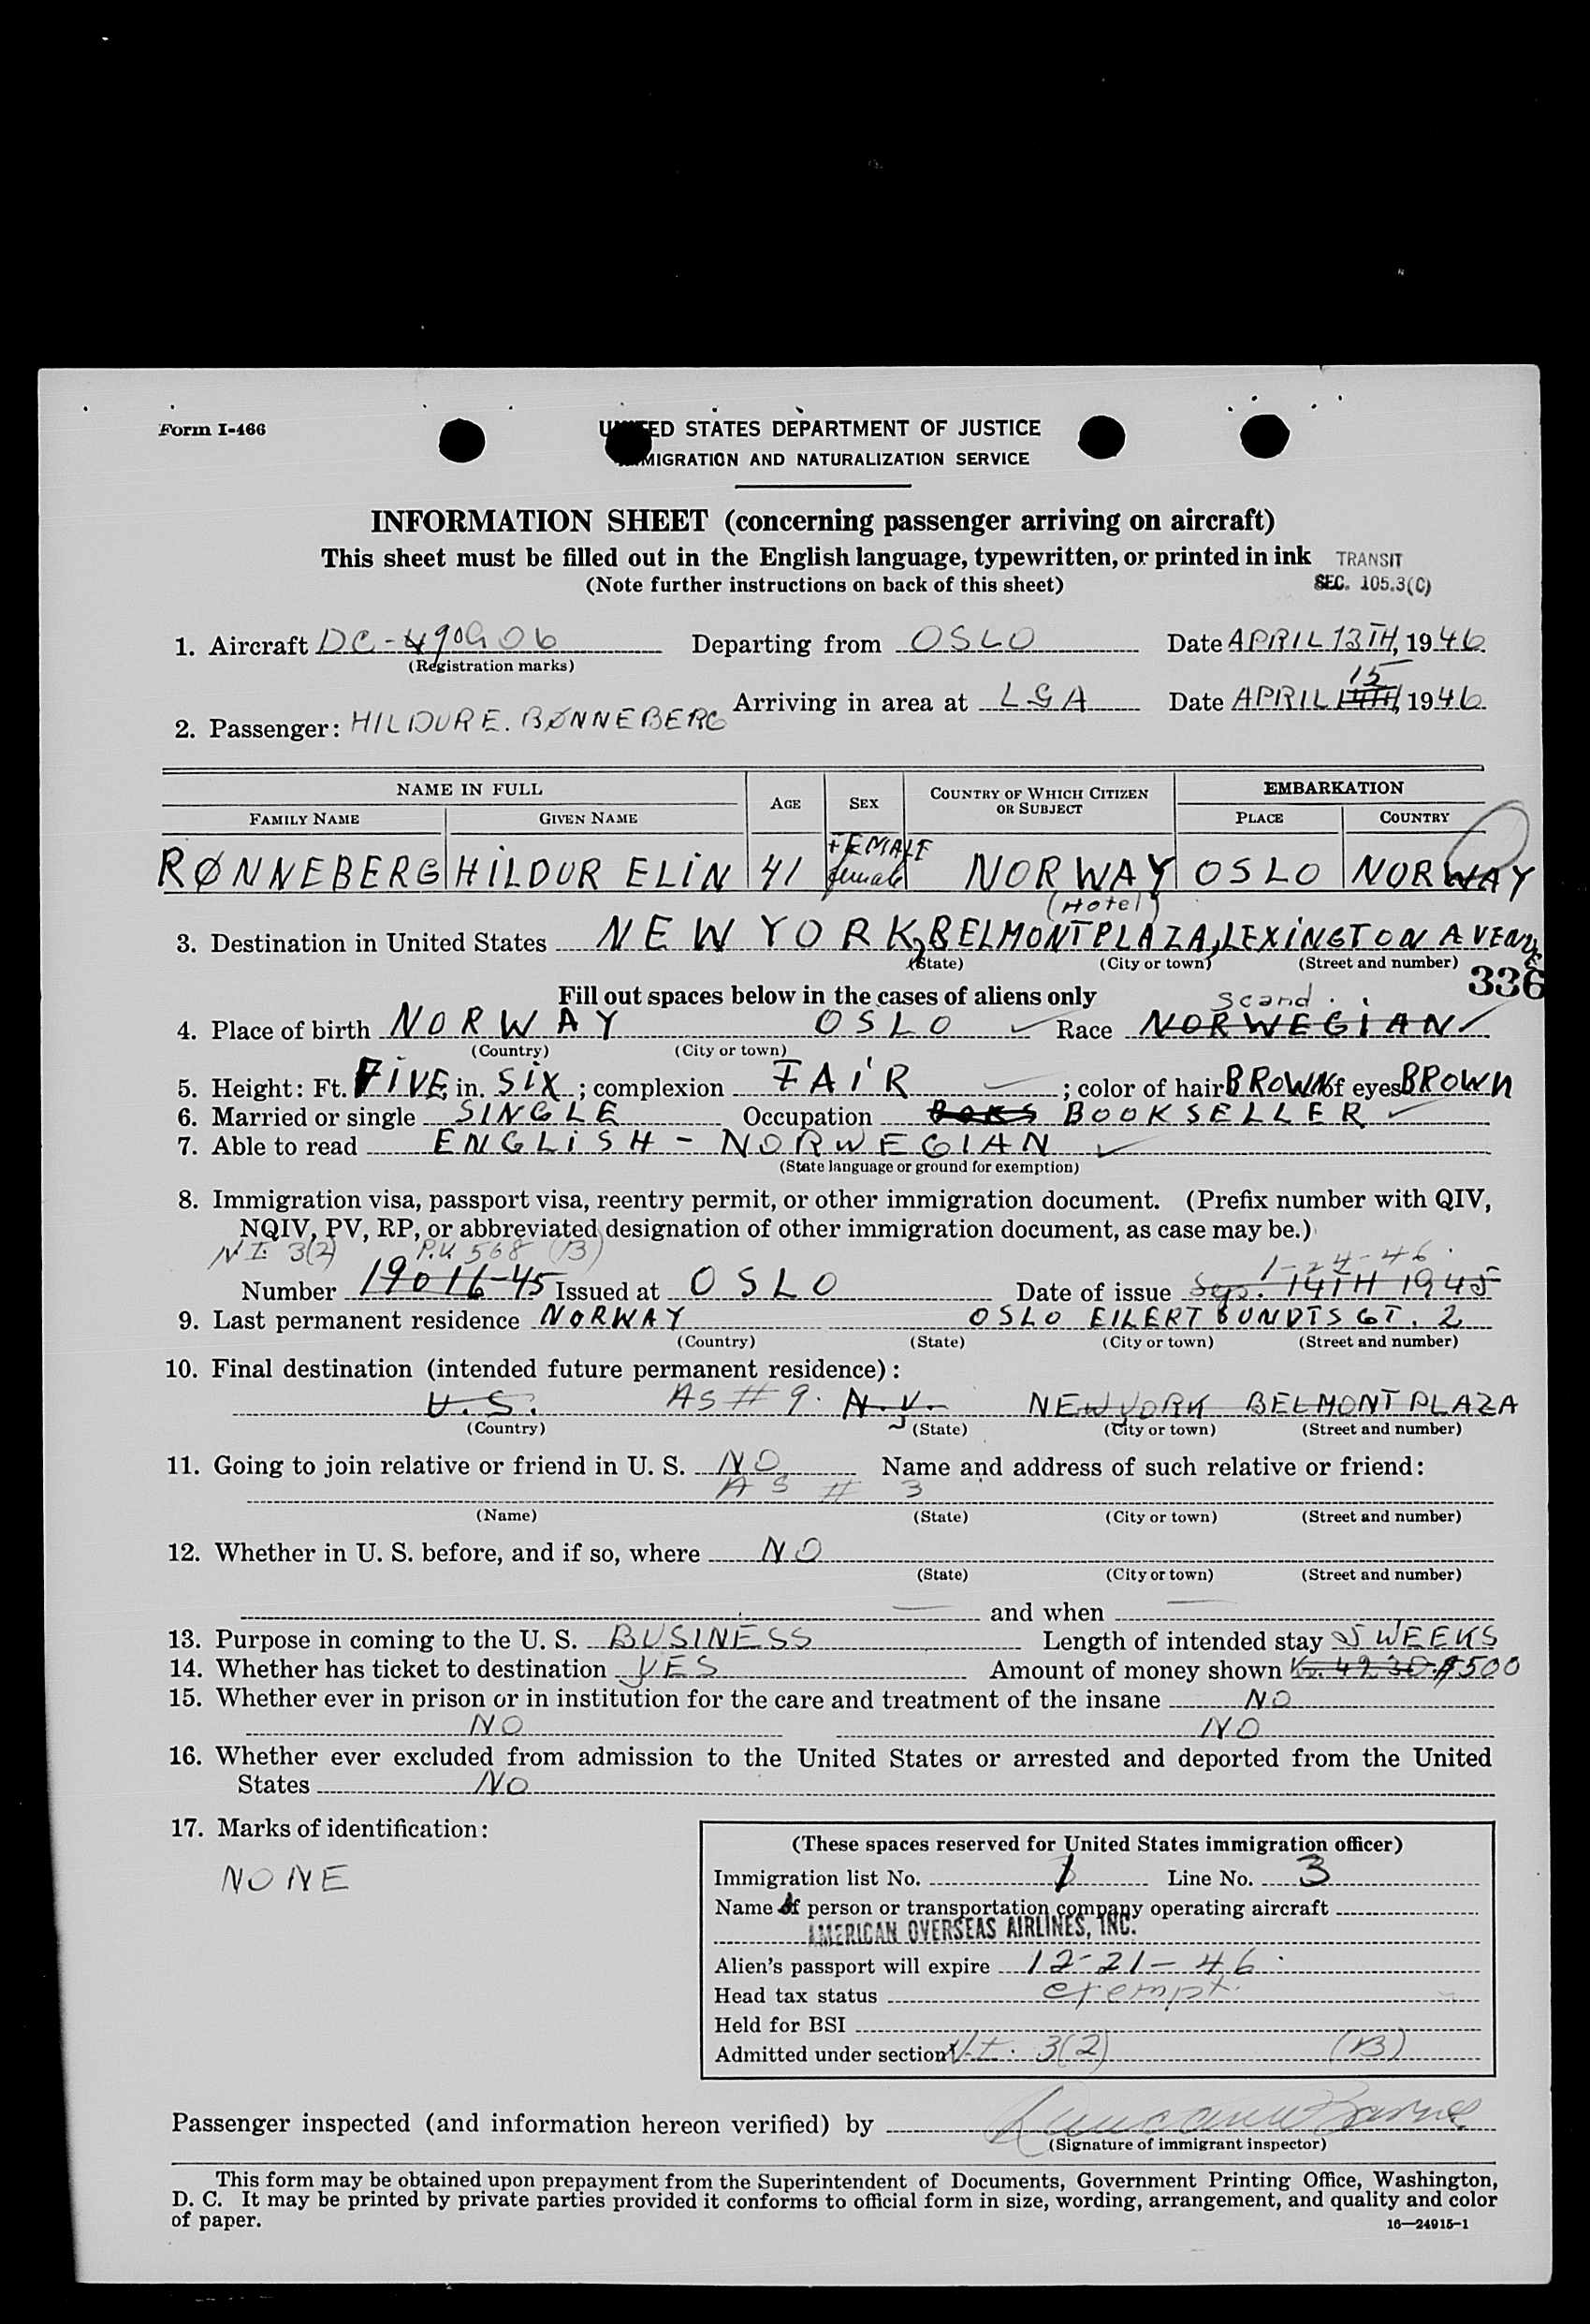 Form I-466
UNITED STATES DEPARTMENT OF JUSTICE
IMMIGRATION AND NATURALIZATION SERVICE
INFORMATION SHEET (concerning passenger arriving on aircraft)
This sheet must be filled out in the English language, typewritten, or printed in ink TRANSIT
(Note further instructions on back of this sheet) SEC. 105.3(C)
1. Aircraft DC-490906 Departing from OSLO Date APRIL 13TH, 1946.
(Registration marks)
15
Arriving in area at LGA Date APRIL 14TH, 1946.
2. Passenger: HILDUR E. RØNNEBERG
NAME IN FULL AGE SEX COUNTRY OF WHICH CITIZEN OR SUBJECT EMBARKATION
FAMILY NAME GIVEN NAME PLACE COUNTRY
FEMALE
RØNNEBERG HILDUR ELIN 41 female NORWAY OSLO NORWAY
(Hotel)
3. Destination in United States NEW YORK, BELMONT PLAZA, LEXINGTON AVENUE
(State) (City or town) (Street and number)
336
Fill out spaces below in the cases of aliens only
Scand.
4. Place of birth NORWAY OSLO Race NORWEGIAN
(Country) (City or town)
5. Height: Ft. FIVE, in. SIX; complexion FAIR; color of hair BROWN of eyes BROWN
6. Married or single SINGLE Occupation BOKS BOOKSELLER
7. Able to read ENGLISH - NORWEGIAN
(State language or ground for exemption)
8. Immigration visa, passport visa, reentry permit, or other immigration document. (Prefix number with QIV,
NQIV, PV, RP, or abbreviated designation of other immigration document, as case may be.)
3(2) P.V 568 (B) 1-24-46.
Number 19016-45 Issued at OSLO Date of issue 14TH 1945
9. Last permanent residence NORWAY OSLO EILERT SUNDTS GT. 2
(Country) (State) (City or town) (Street and number)
10. Final destination (intended future permanent residence):
U.S. AS # 9. N.Y. NEW YORK BELMONT PLAZA
(Country) (State) (City or town) (Street and number)
11. Going to join relative or friend in U. S. NO Name and address of such relative or friend:
AS # 3
(Name) (State) (City or town) (Street and number)
12. Whether in U. S. before, and if so, where NO
(State) (City or town) (Street and number)
and when
13. Purpose in coming to the U. S. BUSINESS Length of intended stay WEEKS
14. Whether has ticket to destination YES Amount of money shown Kr. 49.30. $500
15. Whether ever in prison or in institution for the care and treatment of the insane NO
NO NO
16. Whether ever excluded from admission to the United States or arrested and deported from the United
States NO
17. Marks of identification:
NONE
(These spaces reserved for United States immigration officer)
Immigration list No. 1 Line No. 3
Name of person or transportation company operating aircraft
AMERICAN OVERSEAS AIRLINES, INC.
Alien's passport will expire 12-21-46.
Head tax status exempt.
Held for BSI
Admitted under section 3(2) (B)
Passenger inspected (and information hereon verified) by
(Signature of immigrant inspector)
This form may be obtained upon prepayment from the Superintendent of Documents, Government Printing Office, Washington,
D. C. It may be printed by private parties provided it conforms to official form in size, wording, arrangement, and quality and color
of paper.
16—24915-1